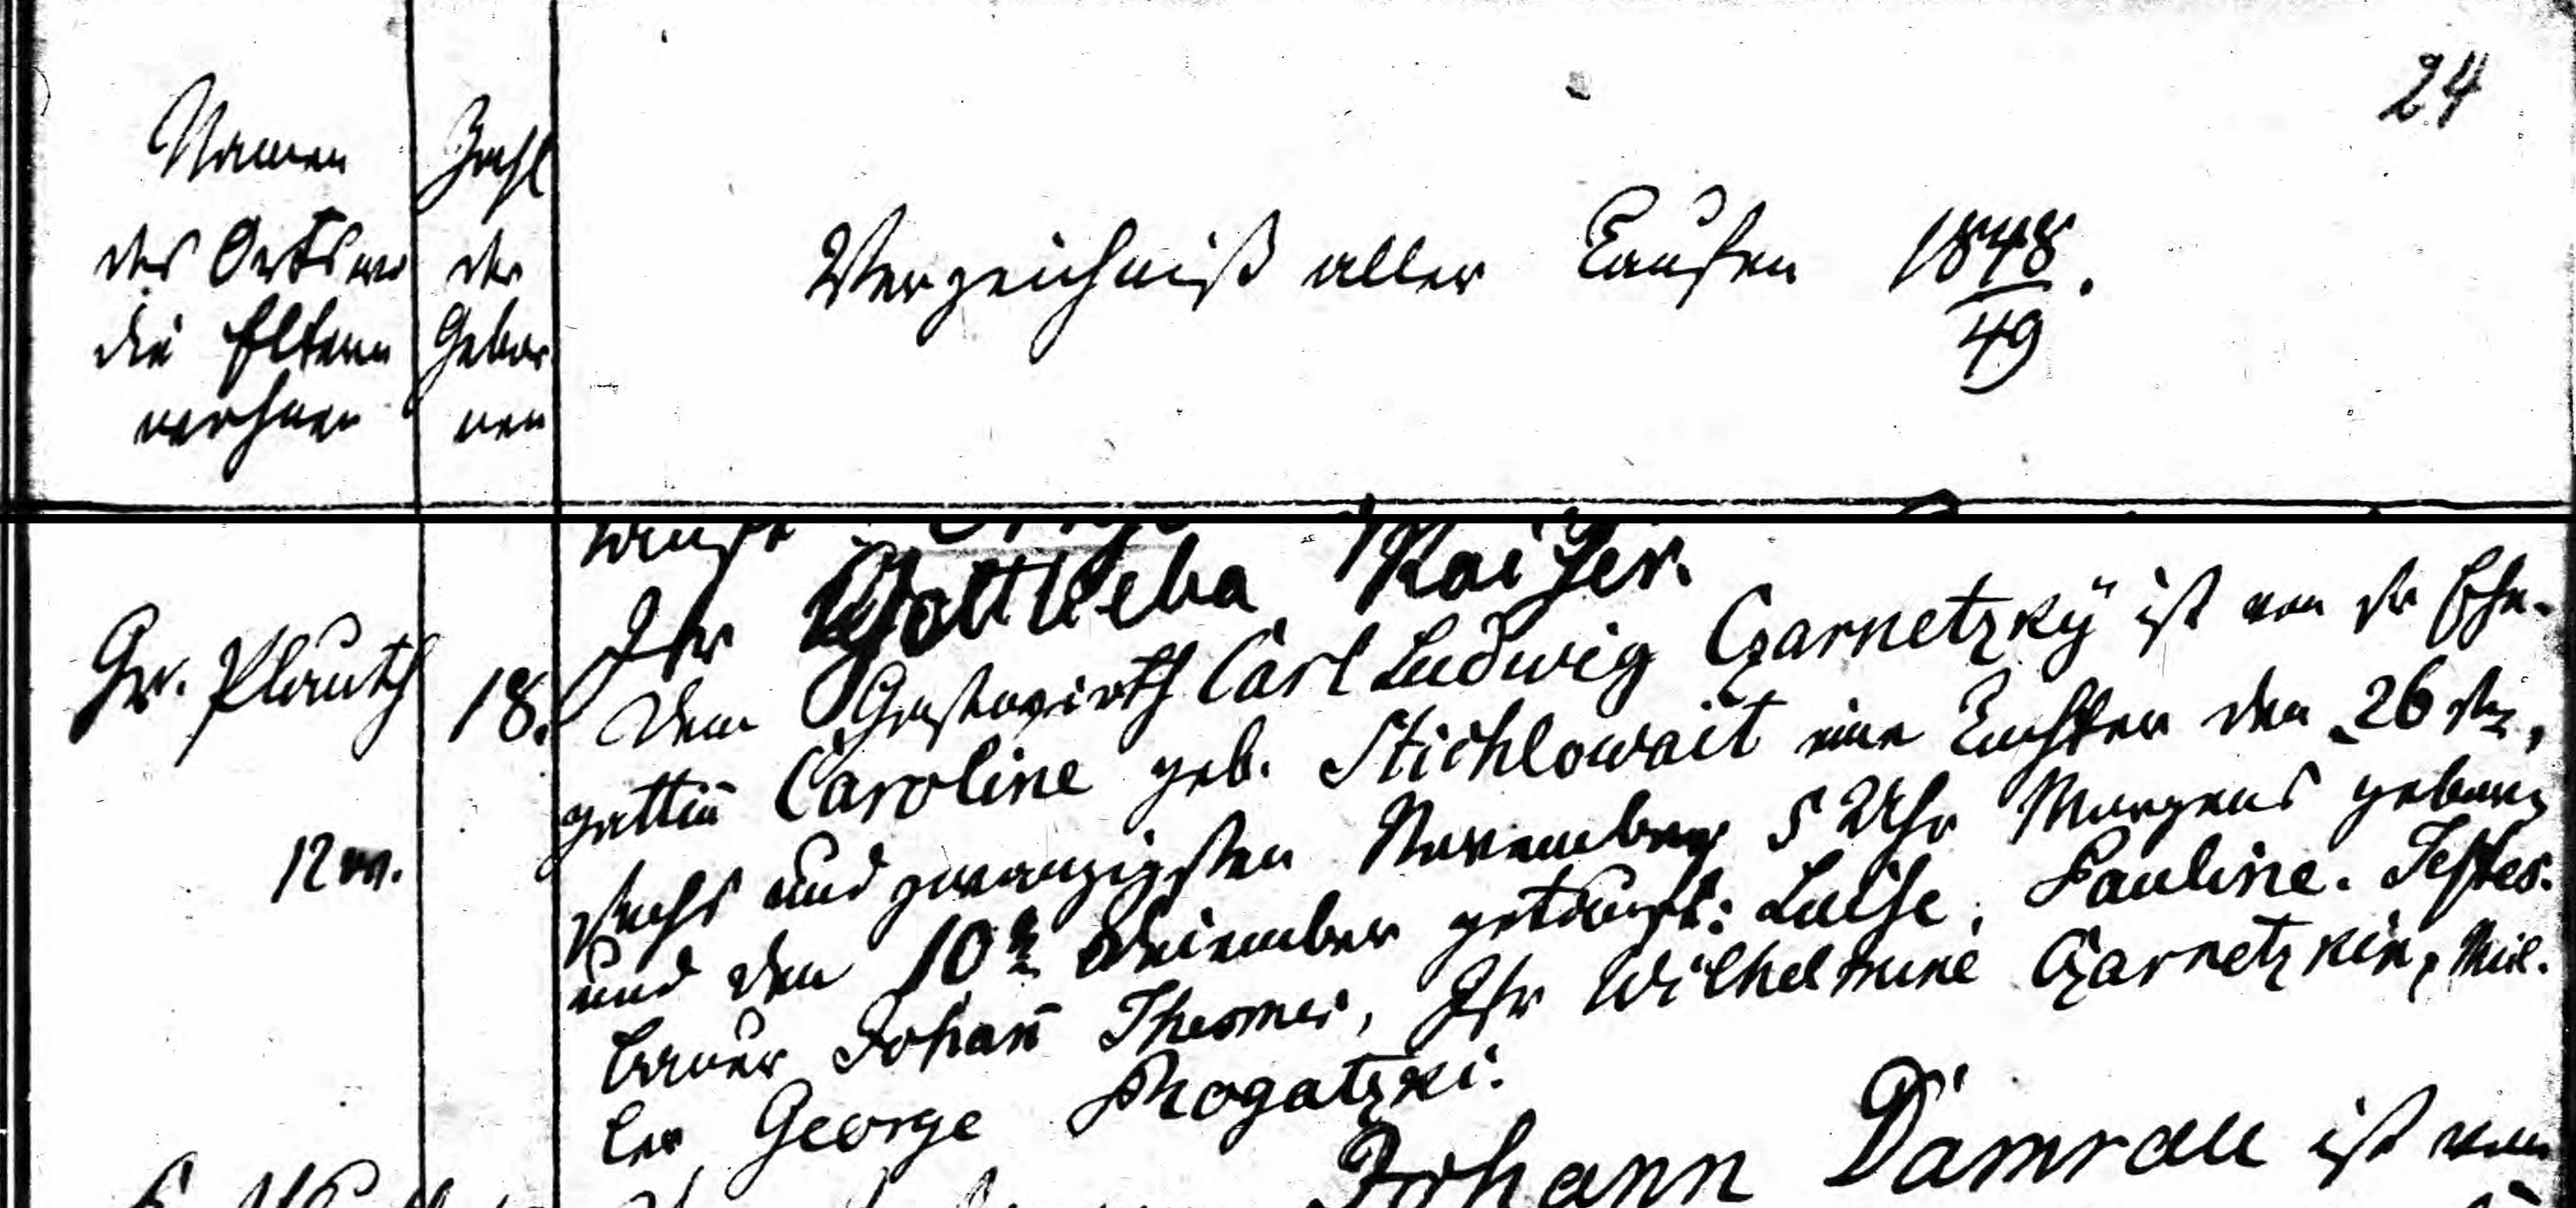 24
Namen
des Orts wo
die Eltern
wohnen
Zahl
der
Gebor
nen
Verzeichniß aller Taufen 1848.
49
Jfr Gottlieba Kaiser.
Gr. Plauth
18.
12 m.
Dem Gastwirth Carl Ludwig Czarnetzky ist von der Ehe-
gattin̄ Caroline geb. Stichlowait eine Tochter den 26 sten,
sechs und zwanzigsten November 5 Uhr Morgens geboren
und den 10 Dezember getauft: Luise, Pauline. Testes.
bauer Johan̄ Thomes, Jfr Wilhelmine Czarnetzkin, Mül.
ler George Rogatzki.
Johann Damrau ist von